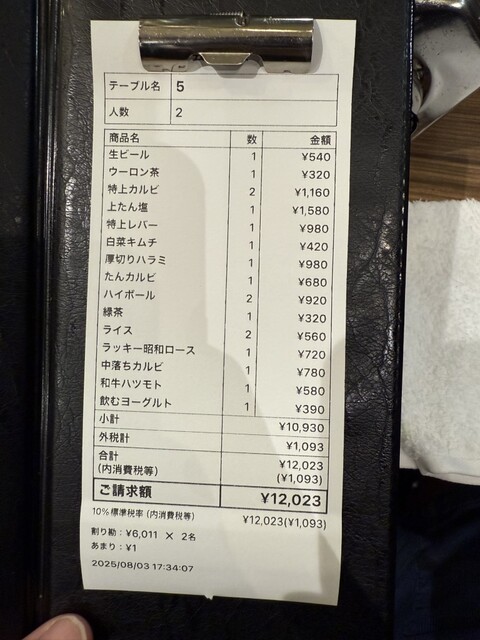 テーブル名 5
人数 2
商品名 数 金額
生ビール 1 ¥540
ウーロン茶 1 ¥320
特上カルビ 2 ¥1,160
上たん塩 1 ¥1,580
特上レバー 1 ¥980
白菜キムチ 1 ¥420
厚切りハラミ 1 ¥980
たんカルビ 1 ¥680
ハイボール 2 ¥920
緑茶 1 ¥320
ライス 2 ¥560
ラッキー昭和ロース 1 ¥720
中落ちカルビ 1 ¥780
和牛ハツモト 1 ¥580
飲むヨーグルト 1 ¥390
小計 ¥10,930
外税計 ¥1,093
合計 ¥12,023
(内消費税等) (¥1,093)
ご請求額 ¥12,023
10%標準税率 (内消費税等) ¥12,023(¥1,093)
割り勘：¥6,011 × 2名
あまり：¥1
2025/08/03 17:34:07